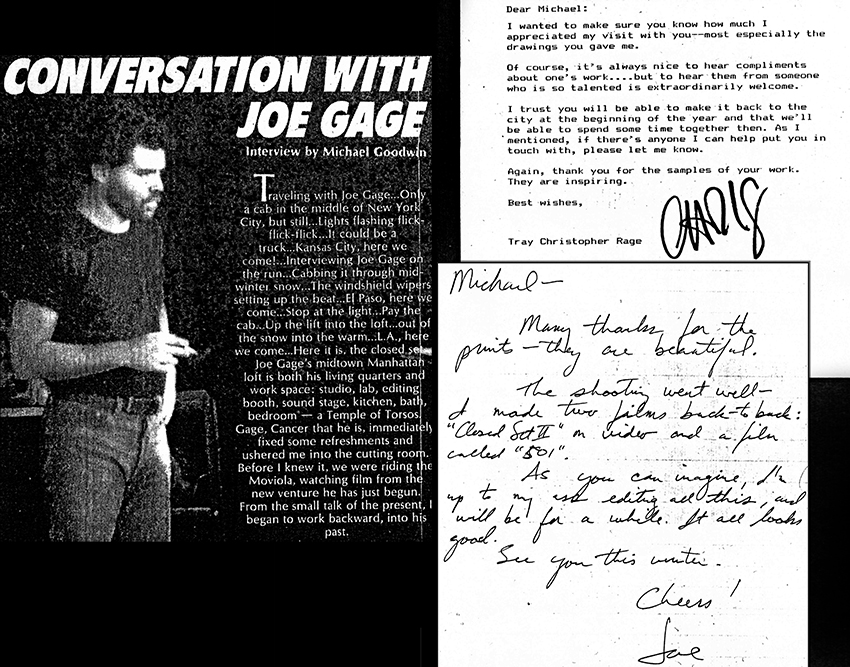 CONVERSATION WITH
JOE GAGE
Interview by Michael Goodwin
Traveling with Joe Gage...Only
a cab in the middle of New York
City, but still...Lights flashing flick-
flick-flick...It could be a
truck...Kansas City, here we
come!...Interviewing Joe Gage on
the run...Cabbing it through mid-
winter snow...The windshield wipers
setting up the beat...El Paso, here we
come...Stop at the light...Pay the
cab...Up the lift into the loft...out of
the snow into the warm...L.A., here
we come...Here it is, the closed set.
Joe Gage's midtown Manhattan
loft is both his living quarters and
work space: studio, lab, editing
booth, sound stage, kitchen, bath,
bedroom — a Temple of Torsos.
Gage, Cancer that he is, immediately
fixed some refreshments and
ushered me into the cutting room.
Before I knew it, we were riding the
Moviola, watching film from the
new venture he has just begun.
From the small talk of the present, I
began to work backward, into his
past.
Dear Michael:
I wanted to make sure you know how much I
appreciated my visit with you--most especially the
drawings you gave me.
Of course, it's always nice to hear compliments
about one's work....but to hear them from someone
who is so talented is extraordinarily welcome.
I trust you will be able to make it back to the
city at the beginning of the year and that we'll
be able to spend some time together then. As I
mentioned, if there's anyone I can help put you in
touch with, please let me know.
Again, thank you for the samples of your work.
They are inspiring.
Best wishes,
Tray Christopher Rage
Michael—
Many thanks for the
prints — they are beautiful.
The shooting went well—
I made two films back-to-back:
"Closed Set II" on video and a film
called "501".
As you can imagine, I'm
up to my ass editing all this, and
will be for a while. It all looks
good.
See you this winter.
Cheers!
Joe